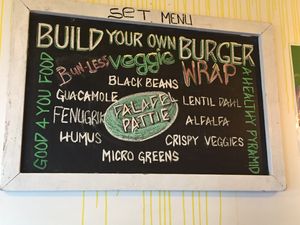 SET MENU
BUILD YOUR OWN BURGER
BUN-LESS veggie WRAP
BLACK BEANS
GUACAMOLE
LENTIL DAHL
FALAFEL
PATTIE
FENUGRIK
ALFALFA
HUMUS
CRISPY VEGGIES
MICRO GREENS
GOOD 4 YOU FOOD
A HEALTHY PYRAMID